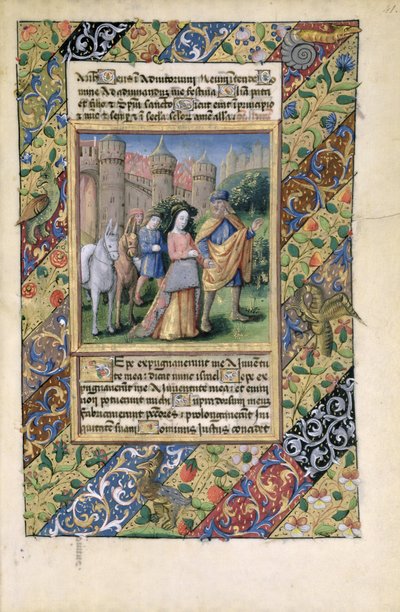 41.
Deus ī Adiutorium Meum ītende Do
mine Ad adiuuandum me festina Glīa patri
et filio & spūi sancto Sicut erat ī principio
et nūc & semp & ī secla seclor amē alla
Sepe expugnauerunt me A iuuen
tute mea: dicat nunc isrl Sepe ex
pugnauerunt me A iuuentute mea: et enim
non potuerunt michi Supra dorsum meū
fabricauerunt pctores: prolongauerunt ini
quitatē suam Dominus iustus concidet